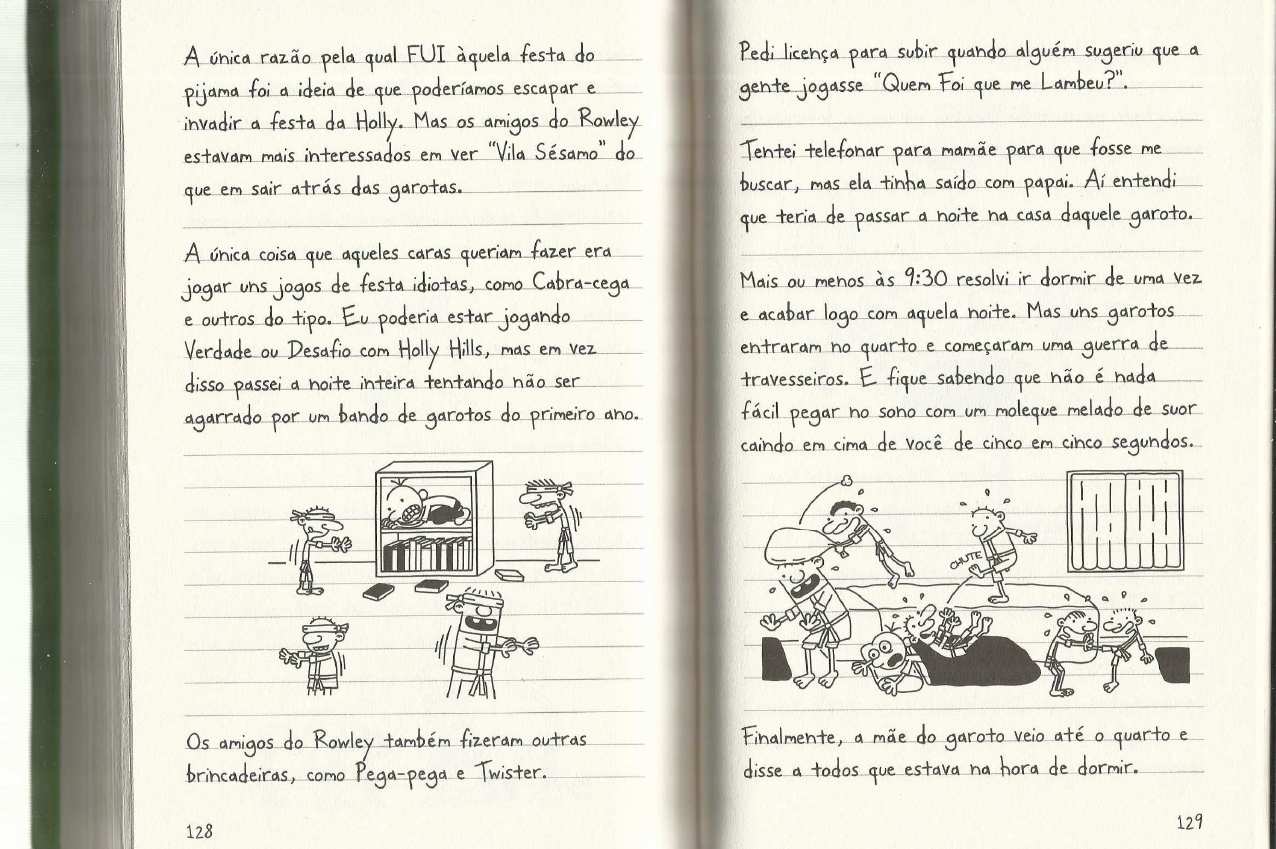 A única razão pela qual FUI àquela festa do
pijama foi a ideia de que poderíamos escapar e
invadir a festa da Holly. Mas os amigos do Rowley
estavam mais interessados em ver "Vila Sésamo" do
que em sair atrás das garotas.
A única coisa que aqueles caras queriam fazer era
jogar uns jogos de festa idiotas, como Cabra-cega
e outros do tipo. Eu poderia estar jogando
Verdade ou Desafio com Holly Hills, mas em vez
disso passei a noite inteira tentando não ser
agarrado por um bando de garotos do primeiro ano.
Os amigos do Rowley também fizeram outras
brincadeiras, como Pega-pega e Twister.
128
Pedi licença para subir quando alguém sugeriu que a
gente jogasse "Quem Foi que me Lambeu?".
Tentei telefonar para mamãe para que fosse me
buscar, mas ela tinha saído com papai. Aí entendi
que teria de passar a noite na casa daquele garoto.
Mais ou menos às 9:30 resolvi ir dormir de uma vez
e acabar logo com aquela noite. Mas uns garotos
entraram no quarto e começaram uma guerra de
travesseiros. E fique sabendo que não é nada
fácil pegar no sono com um moleque melado de suor
caindo em cima de você de cinco em cinco segundos.
CHUTE
Finalmente, a mãe do garoto veio até o quarto e
disse a todos que estava na hora de dormir.
129